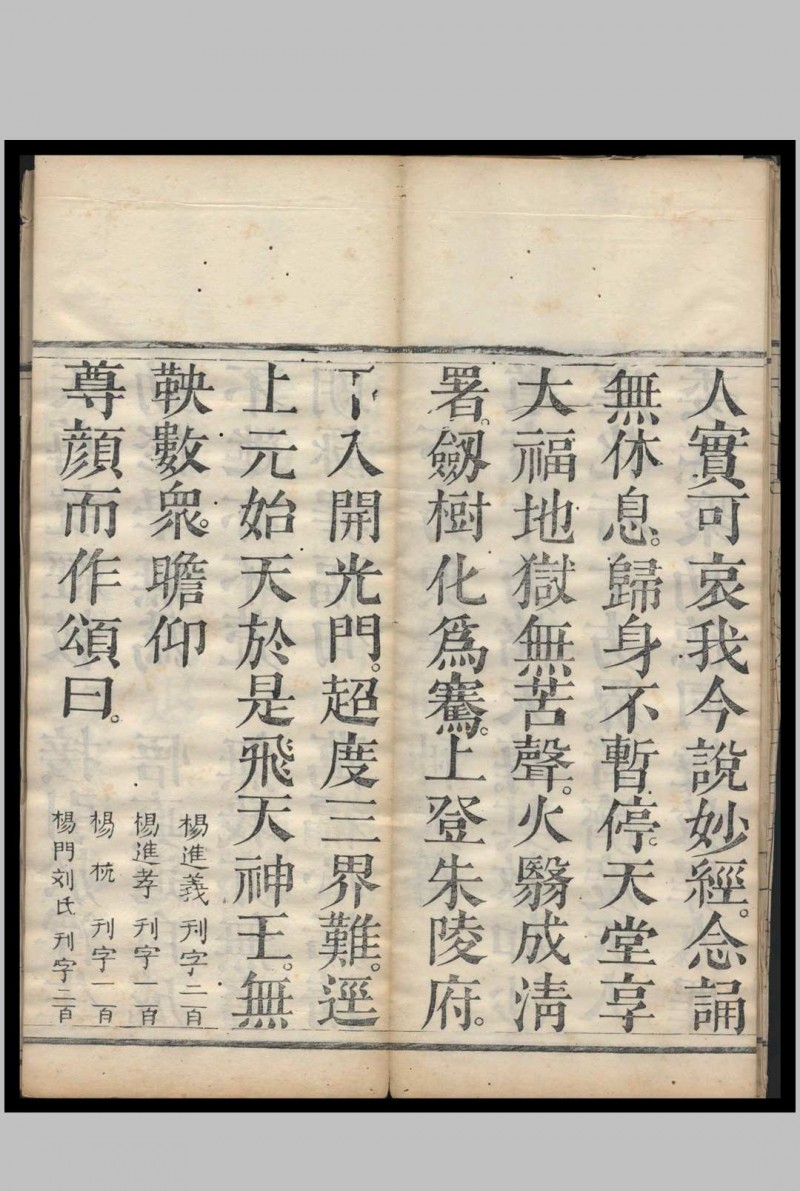 人實可哀我今説妙經。念誦
無休息。歸身不暫停。天堂享
大福地獄無苦聲。火翳成清
署。劒樹化爲騫。上登朱陵府。
下入開光門。超度三界難。逕
上元始天於是飛天神王。無
鞅數衆。瞻仰
尊顔而作頌曰。
楊進義刋字二百
楊進孝刋字一百
楊杬刋字一百
楊門刘氏刋字二百